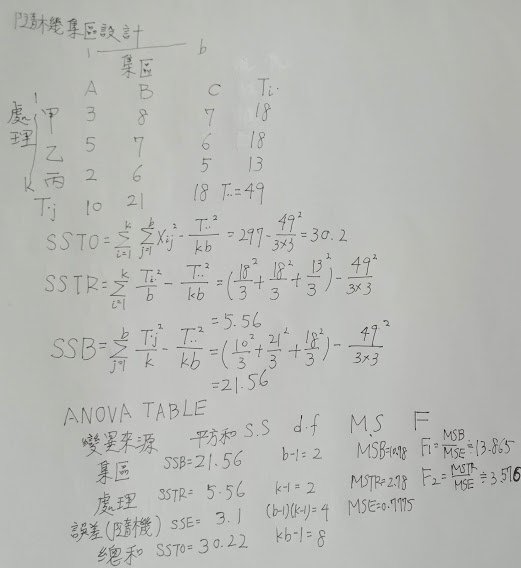 隨機集區設計
1 b
集區
A B C Ti.
處理 1 甲 3 8 7 18
乙 5 7 6 18
k 丙 2 6 5 13
T.j 10 21 18 T..=49
SSTO=∑_{i=1}^{k} ∑_{j=1}^{b} Xij² - T..²/kb = 297 - 49²/3x3 = 30.2
SSTR=∑_{i=1}^{k} Ti.²/b - T..²/kb = (18²/3 + 18²/3 + 13²/3) - 49²/3x3
=5.56
SSB=∑_{j=1}^{b} T.j²/k - T..²/kb = (10²/3 + 21²/3 + 18²/3) - 49²/3x3
=21.56
ANOVA TABLE
變異來源 平方和 S.S d.f M.S F
集區 SSB=21.56 b-1=2 MSB=10.78 F₁=MSB/MSE≑13.865
處理 SSTR=5.56 k-1=2 MSTR=2.78 F₂=MSTR/MSE≑3.576
誤差(隨機) SSE=3.1 (b-1)(k-1)=4 MSE=0.7775
總和 SSTO=30.22 kb-1=8